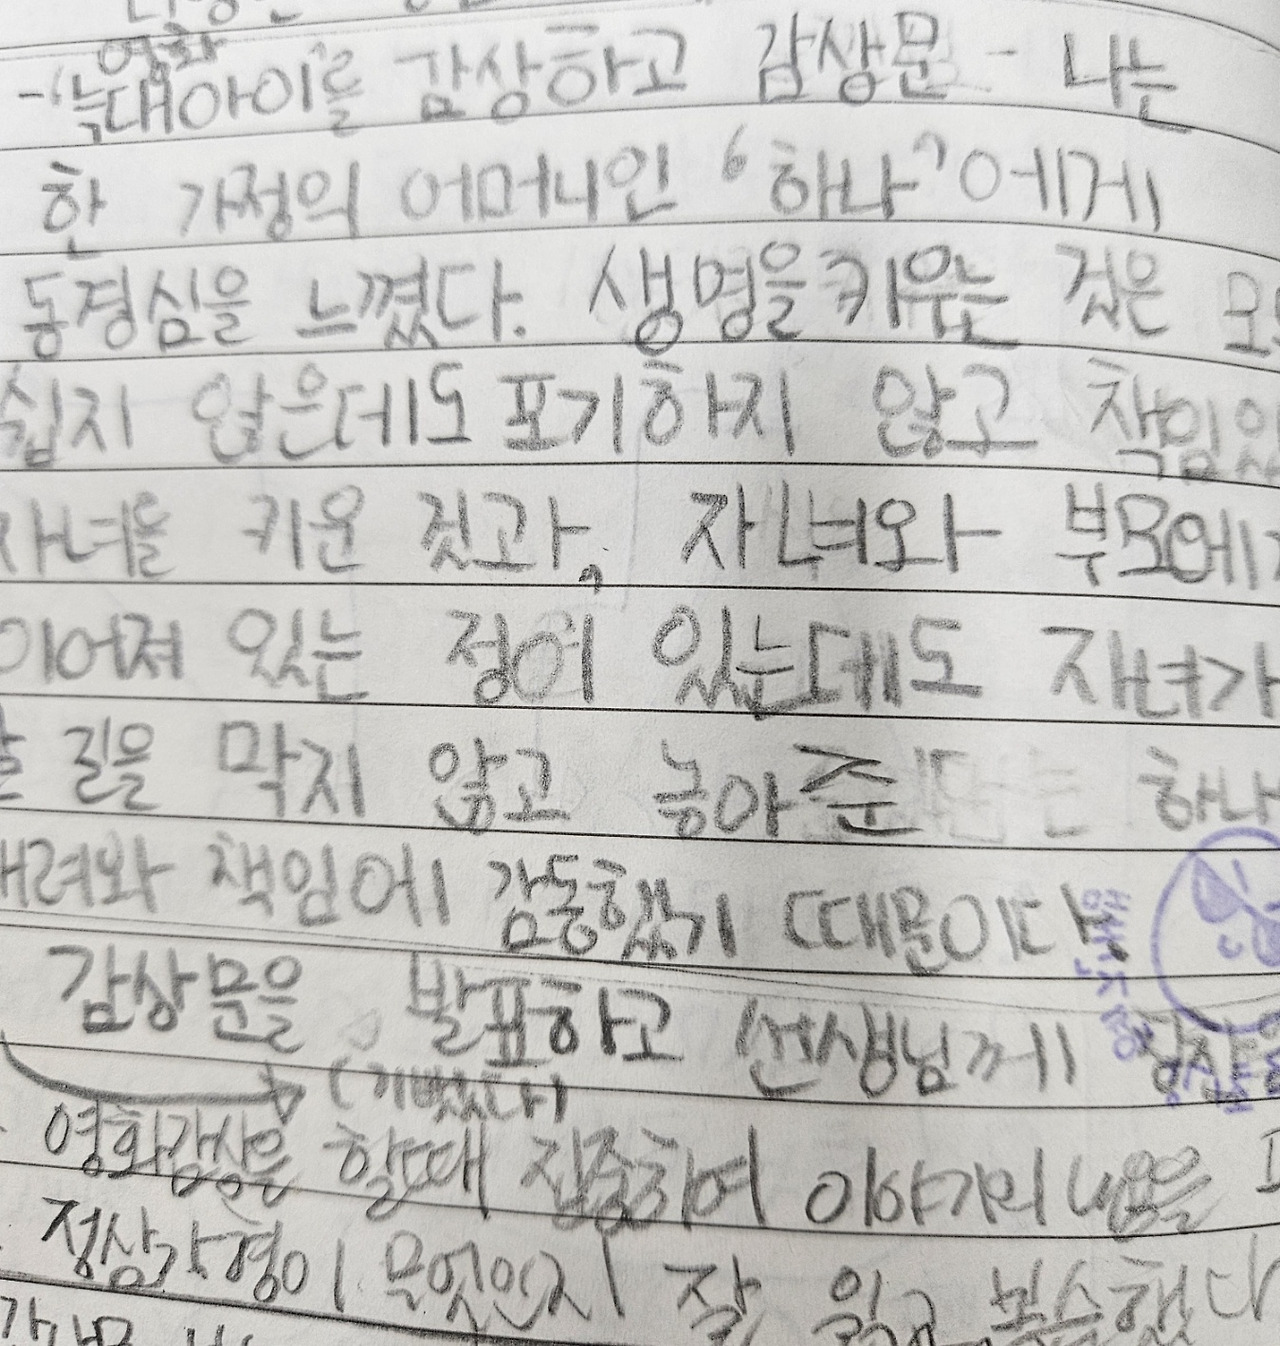 영화
-'늑대아이'를 감상하고 감상문 - 나는
한 가정의 어머니인 '하나'에게
동경심을 느꼈다. 생명을 키우는 것은
쉽지 않은데도 포기하지 않고 책임
자녀를 키운 것과, 자녀와 부모에게
이어져 있는 정이 있는데도 자녀가
길을 막지 않고 놓아준 하나
책임에 감동했기 때문이다.
감상문을 발표하고 선생님께 칭찬을
(기뻤다)
영화감상을 할때 집중하여 이야기의 내용을
정삼각형이 무엇인지 잘 읽고 복습했다